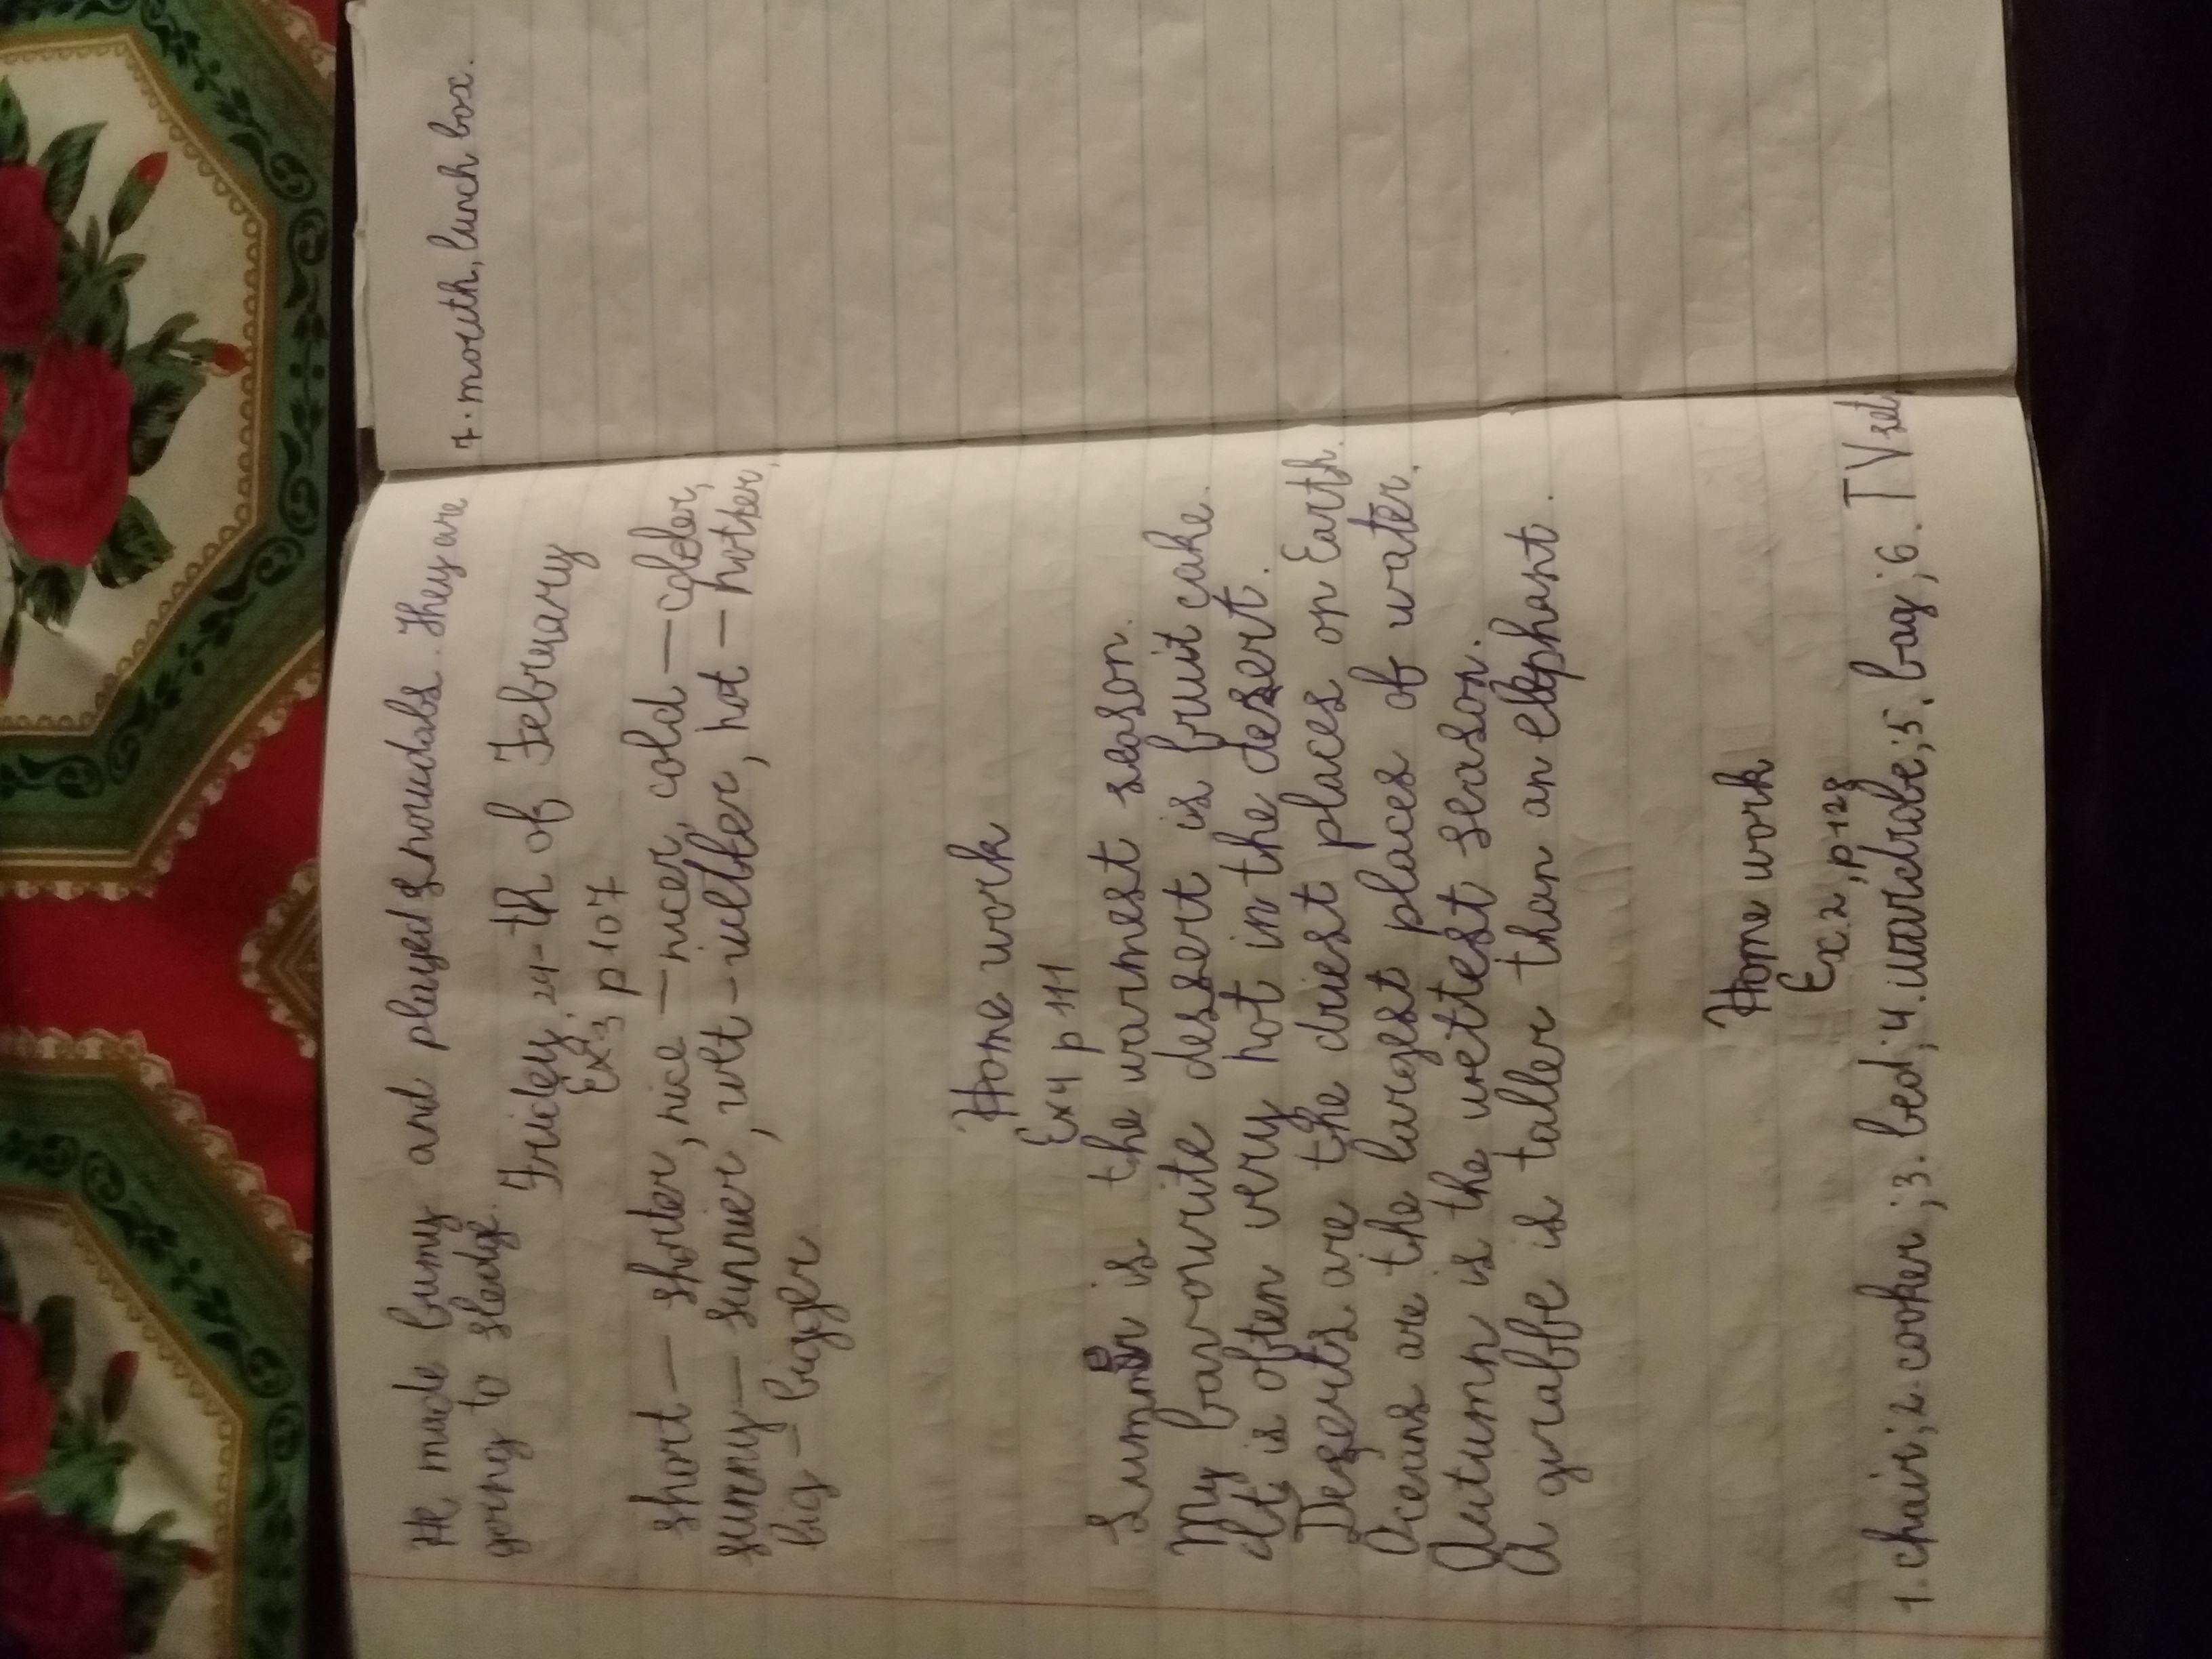 He made bumy and played snowdabs. They are
going to sledge.
Fridey, 24-th of February
Ex 3 p 107
short — shorter, nice — nicer, cold — colder,
sunny — sunnier, wet - wetter, hot — hotter,
big — bigger
Home work
Ex 4 p 111
Summer is the warmest season.
My favourite dessert is fruit cake.
It is often very hot in the desert.
Deserts are the driest places on Earth.
Oceans are the largest places of water.
Autumn is the wettest season.
A giraffe is taller than an elephant.
Home work
Ex. 2, p 128
1. chair; 2 cooker; 3. bed; 4. wardrobe; 5. bag; 6. TV set
7. mouth, lunch box.